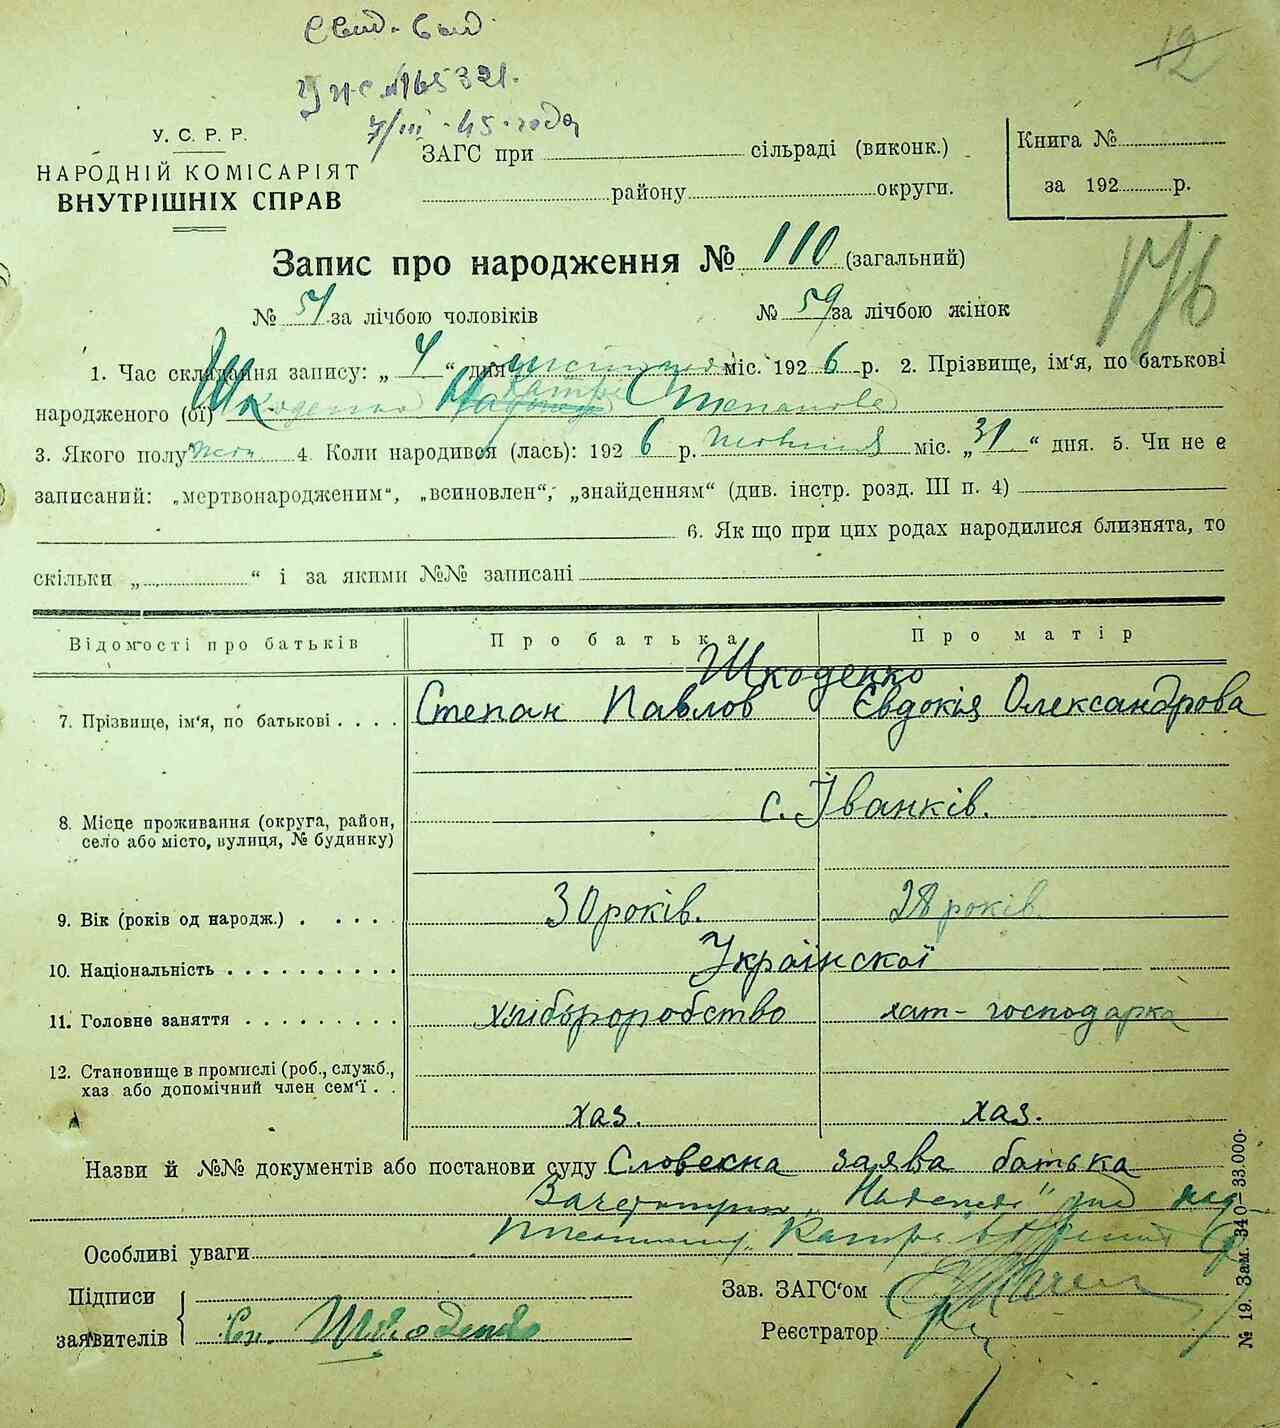 Свид. выд
УНС №165321.
7/III - 45 - года
12
У. С. Р. Р.
НАРОДНІЙ КОМІСАРІЯТ
ВНУТРІШНІХ СПРАВ
ЗАГС при сільраді (виконк.)
району округи.
Книга №
за 192 р.
Запис про народження № 110 (загальний)
176
№ 51 за лічбою чоловіків № 59 за лічбою жінок
1. Час складання запису: „ 4 “ дня листопада міс. 192 6 р. 2. Прізвище, ім'я, по батькові
народженого (ої) Шкоденко Катря Степанова
3. Якого полу жін. 4. Коли народився (лась): 192 6 р. жовтня міс. „ 31 “ дня. 5. Чи не є
записаний: „мертвонародженим“, „всиновлен“, „знайденням“ (див. інстр. розд. III п. 4)
6. Як що при цих родах народилися близнята, то
скільки „ “ і за якими №№ записані
Відомості про батьків Про батька Про матір
Шкоденко
7. Прізвище, ім'я, по батькові . . . . Степан Павлов Євдокія Олександрова
с. Іванків.
8. Місце проживання (округа, район,
село або місто, вулиця, № будинку)
9. Вік (років од народж.) . . . . . 30 років. 28 років
10. Національність . . . . . . . . . . Українскої
11. Головне заняття . . . . . . . . . хліборобство хат- господарка
12. Становище в промислі (роб., служб.,
хаз або допомічний член сем'ї . .
хаз. хаз.
Назви й №№ документів або постанови суду Словесна заява батька
над-
Особливі уваги Катря
Підписи
заявителів Шкоденко
Зав. ЗАГС'ом
Реєстратор
№ 19. Зам. 340–33.000.